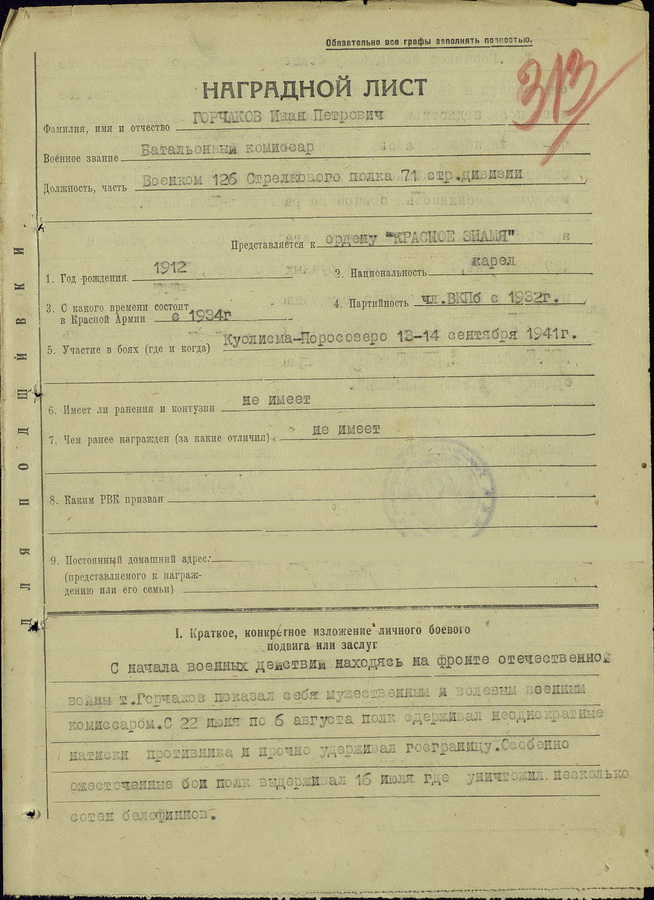 Обязательно все графы заполнять полностью.
313
НАГРАДНОЙ ЛИСТ
Фамилия, имя и отчество ГОРЧАКОВ Иван Петрович
Военное звание Батальонный комиссар
Должность, часть Военком 126 Стрелкового полка 71 стр.дивизии
Представляется к ордену "КРАСНОЕ ЗНАМЯ"
1. Год рождения 1912 2. Национальность карел
3. С какого времени состоит
в Красной Армии с 1934г 4. Партийность чл.ВКПб с 1932г.
5. Участие в боях (где и когда) Куолисма-Поросозеро 13-14 сентября 1941г.
6. Имеет ли ранения и контузии не имеет
7. Чем ранее награжден (за какие отличия) не имеет
8. Каким РВК призван
9. Постоянный домашний адрес:
(представляемого к награж-
дению или его семьи)
I. Краткое, конкретное изложение личного боевого
подвига или заслуг
С начала военных действий находясь на фронте отечественной
войны т.Горчаков показал себя мужественным и волевым военным
комиссаром.С 22 июня по 6 августа полк сдерживал неоднократные
натиски противника и прочно удерживал госграницу.Особенно
ожесточенные бои полк выдерживал 16 июля где уничтожил несколько
сотен белофиннов.
ДЛЯ ПОДШИВКИ